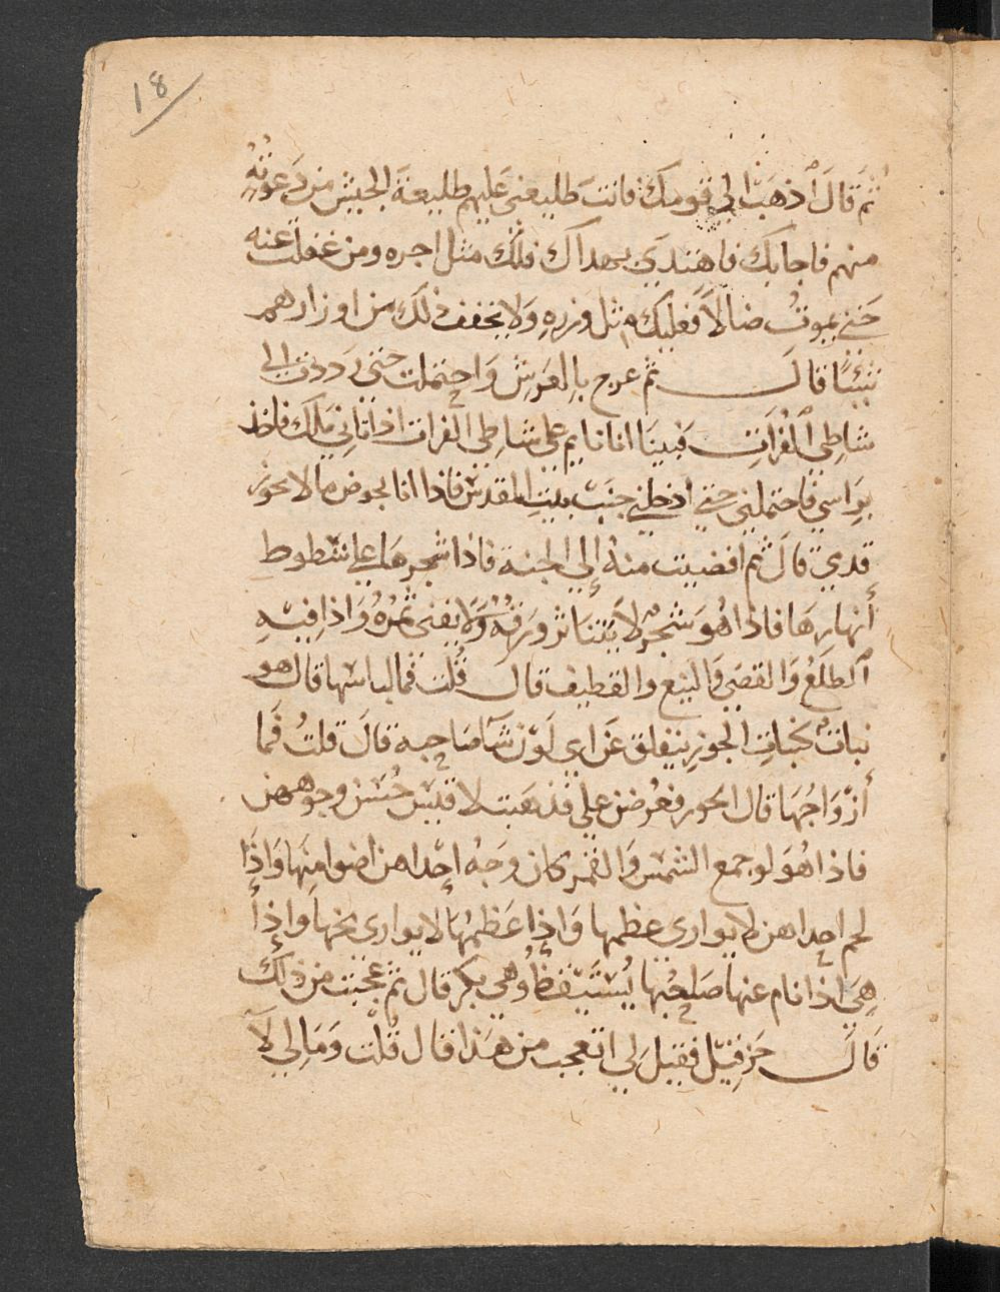 18
ثُمَّ قَالَ اذهَبْ الي قومك فانت طليعتي عَليهم طليعةَ الجيش من دَعوتَهُ
منهم فاجابك فاهتدَي بهداك فلك مثل اجره ومن غفلت عنه
حَتي يموتُ ضالاً فعليك مثل وزرهِ وَلا يخفف ذلك من اوزارهم
شَيْئًا قال ثم عرج بالعَرشِ وَاحتملت حتي رَددت الي
شاطِي الفُرَاتِ فبينَا انا نايم علي شاطِي الفرات اذ اتاني مَلَك فاخذ
بِرَاسي فاحتملني حتي ادخلني جنبَ بيتِ المقدس فاذا انا بحوض ما لا يحوز
قدمي قالَ ثم افضيت منهُ إلي الجنة فاذا شجرهَا علي شطوط
أنهارهَا فاذا هُوَ شجرٌ لاَ يَتناثر ورَقُهُ وَلَا يفنَي ثمَرُهُ وَاذا فيه
الطلَعُ وَالقضي وَالينع والقطيف قال قُلت فما لباسُها قال هو
نباتٌ كنباتِ الجوزِ يتفلق عَن اي لَوْن شآ صَاحِبه قالَ قلتُ فَما
أزْوَاجُهَا قال الحور فعُرضن علي فذهَبت لاقيس حُسْن وجوههن
فاذا هُوَ لو جمع الشمسَ وَالقمر كان وَجهُ إحْداهن اضوا منهَا وَإذَا
لحم احداهن لا يواري عظمها وَإذا عَظمُهَا لا يواري مخها واذأ
هِيَ اذا نام عنها صَاحُبها يُسْتَيقظُ وهي بكر قال ثم عجبت من ذلك
قَالَ حَزقيل فقيل لي اتعجب من هَذا قال قُلت وَمَا لي لاَ